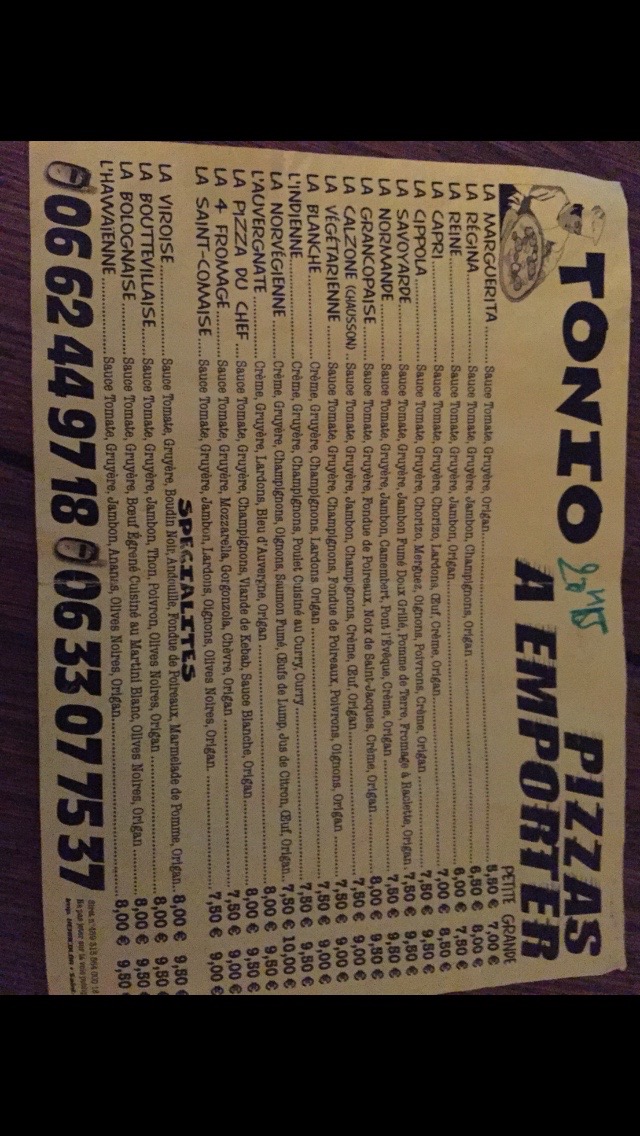 TONIO PIZZAS
A EMPORTER
PETITE GRANDE
LA MARGUERITA ..... Sauce Tomate, Gruyère, Origan..... 5,50 € 7,00 €
LA RÉGINA..... Sauce Tomate, Gruyère, Jambon, Champignons, Origan ..... 6,50 € 8,00 €
LA REINE ..... Sauce Tomate, Gruyère, Jambon, Origan..... 6,00 € 7,50 €
LA CAPRI..... Sauce Tomate, Gruyère, Chorizo, Lardons, Œuf, Crème, Origan..... 7,00 € 8,50 €
LA CIPPOLA..... Sauce Tomate, Gruyère, Chorizo, Merguez, Oignons, Poivrons, Crème, Origan ..... 7,50 € 9,50 €
LA SAVOYARDE ..... Sauce Tomate, Gruyère, Jambon Fumé Doux Grillé, Pomme de Terre, Fromage à Raclette, Origan 7,50 € 9,50 €
LA NORMANDE..... Sauce Tomate, Gruyère, Jambon, Camembert, Pont l'Evêque, Crème, Origan ..... 7,50 € 9,50 €
LA GRANCOPAISE ..... Sauce Tomate, Gruyère, Fondue de Poireaux, Noix de Saint-Jacques, Crème, Origan ..... 8,00 € 9,50 €
LA CALZONE (CHAUSSON) .. Sauce Tomate, Gruyère, Jambon, Champignons, Crème, Œuf, Origan ..... 7,50 € 9,00 €
LA VÉGÉTARIENNE ..... Sauce Tomate, Gruyère, Champignons, Fondue de Poireaux, Poivrons, Oignons, Origan ..... 7,50 € 9,00 €
LA BLANCHE..... Crème, Gruyère, Champignons, Lardons Origan ..... 7,50 € 9,00 €
L'INDIENNE..... Crème, Gruyère, Champignons, Poulet Cuisiné au Curry Curry..... 7,50 € 9,50 €
LA NORVÉGIENNE ..... Crème, Gruyère, Champignons, Oignons, Saumon Fumé, Œufs de Lump, Jus de Citron, Œuf, Origan... 7,50 € 10,00 €
L'AUVERGNATE ..... Crème, Gruyère, Lardons, Bleu d'Auvergne, Origan ..... 8,00 € 9,50 €
LA PIZZA DU CHEF .... Sauce Tomate, Gruyère, Champignons, Viande de Kebab, Sauce Blanche, Origan..... 8,00 € 9,50 €
LA 4 FROMAGE ..... Sauce Tomate, Gruyère, Mozzarella, Gorgonzola, Chèvre, Origan ..... 7,50 € 9,00 €
LA SAINT-COMAISE ..... Sauce Tomate, Gruyère, Jambon, Lardons, Oignons, Olives Noires, Origan ..... 7,50 € 9,00 €
SPECIALITES
LA VIROISE..... Sauce Tomate, Gruyère, Boudin Noir, Andouille, Fondue de Poireaux, Marmelade de Pomme, Origan.. 8,00 € 9,50 €
LA BOUTTEVILLAISE ..... Sauce Tomate, Gruyère, Jambon, Thon, Poivron, Olives Noires, Origan ..... 8,00 € 9,50
LA BOLOGNAISE ..... Sauce Tomate, Gruyère, Bœuf Égrené Cuisiné au Martini Blanc, Olives Noires, Origan ..... 8,00 € 9,50
L'HAWAÏENNE ..... Sauce Tomate, Gruyère, Jambon, Ananas, Olives Noires, Origan..... 8,00 € 9,50
06 62 44 97 18 06 33 07 75 37